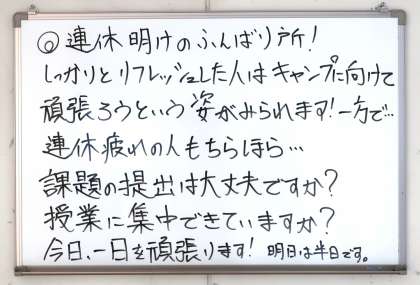 ◎連休明けのふんばり所!
しっかりとリフレッシュした人はキャンプに向けて
頑張ろうという姿がみられます!一方で…
連休疲れの人もちらほら…
課題の提出は大丈夫ですか?
授業に集中できていますか?
今日、一日を頑張ります! 明日は半日です。